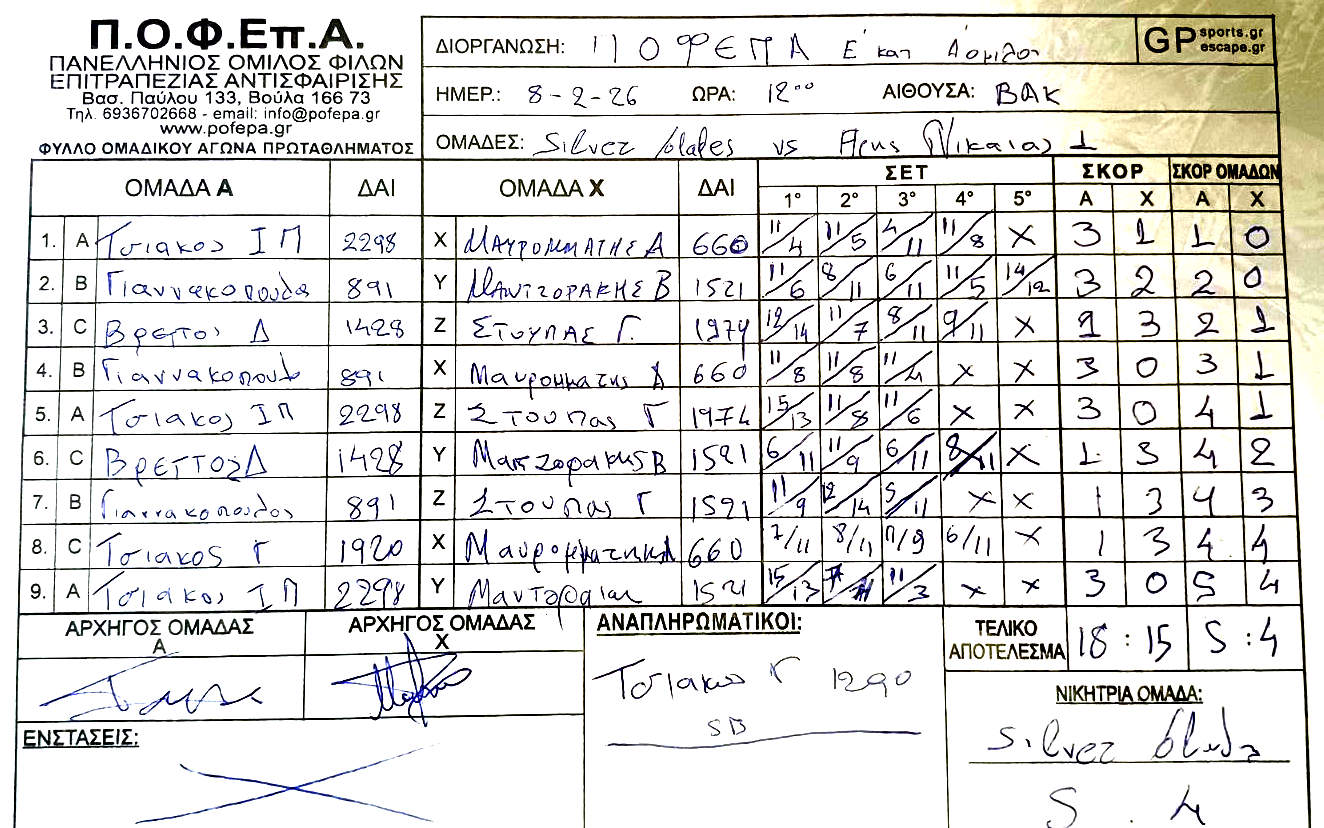 Π.Ο.Φ.Επ.Α.
ΠΑΝΕΛΛΗΝΙΟΣ ΟΜΙΛΟΣ ΦΙΛΩΝ
ΕΠΙΤΡΑΠΕΖΙΑΣ ΑΝΤΙΣΦΑΙΡΙΣΗΣ
Βασ. Παύλου 133, Βούλα 166 73
Τηλ. 6936702668 - email: info@pofepa.gr
www.pofepa.gr
ΦΥΛΛΟ ΟΜΑΔΙΚΟΥ ΑΓΩΝΑ ΠΡΩΤΑΘΛΗΜΑΤΟΣ
ΔΙΟΡΓΑΝΩΣΗ: ΠΟΦΕΠΑ Ε' κατ
GP sports.gr escape.gr
ΗΜΕΡ.: 8-2-26 ΩΡΑ: 12°° ΑΙΘΟΥΣΑ: ΒΑΚ
ΟΜΑΔΕΣ: Silver blades vs Αρης Νικαιας 1
ΟΜΑΔΑ Α ΔΑΙ ΟΜΑΔΑ Χ ΔΑΙ ΣΕΤ ΣΚΟΡ ΣΚΟΡ ΟΜΑΔΩΝ
1° 2° 3° 4° 5° Α Χ Α Χ
1. Α Τσιακος Ι Π 2298 Χ ΜΑΥΡΟΜΜΑΤΗΣ Δ 660 11/4 11/5 4/11 11/8 Χ 3 1 1 0
2. Β Γιαννακοπουλος 891 Υ ΜΑΝΤΖΟΡΑΚΗΣ Β 1521 11/6 8/11 6/11 11/5 14/12 3 2 2 0
3. C Βρεττος Δ 1428 Ζ ΣΤΟΥΠΑΣ Γ. 1974 12/14 11/7 8/11 9/11 Χ 1 3 2 1
4. Β Γιαννακοπουλο 891 Χ Μαυρομματης Δ 660 11/8 11/8 11/4 Χ Χ 3 0 3 1
5. Α Τσιακος Ι Π 2298 Ζ Στουπας Γ 1974 15/13 11/8 11/6 Χ Χ 3 0 4 1
6. C ΒΡΕΤΤΟΣ Δ 1428 Υ Μαντζορακης Β 1521 6/11 11/9 6/11 8/11 Χ 1 3 4 2
7. Β Γιαννακοπουλος 891 Ζ Στουπας Γ 1521 11/9 12/14 5/11 Χ Χ 1 3 4 3
8. C Τσιακος Γ 1920 Χ 660 7/11 8/11 11/9 6/11 Χ 1 3 4 4
9. Α Τσιακος Ι Π 2298 Υ 1521 15/13 11/3 Χ Χ 3 0 5 4
ΑΡΧΗΓΟΣ ΟΜΑΔΑΣ Α ΑΡΧΗΓΟΣ ΟΜΑΔΑΣ Χ
ΑΝΑΠΛΗΡΩΜΑΤΙΚΟΙ:
Τσιακος Γ 1290
SB
ΤΕΛΙΚΟ ΑΠΟΤΕΛΕΣΜΑ 18 : 15 5 : 4
ΝΙΚΗΤΡΙΑ ΟΜΑΔΑ:
Silver
5 . 4
ΕΝΣΤΑΣΕΙΣ: